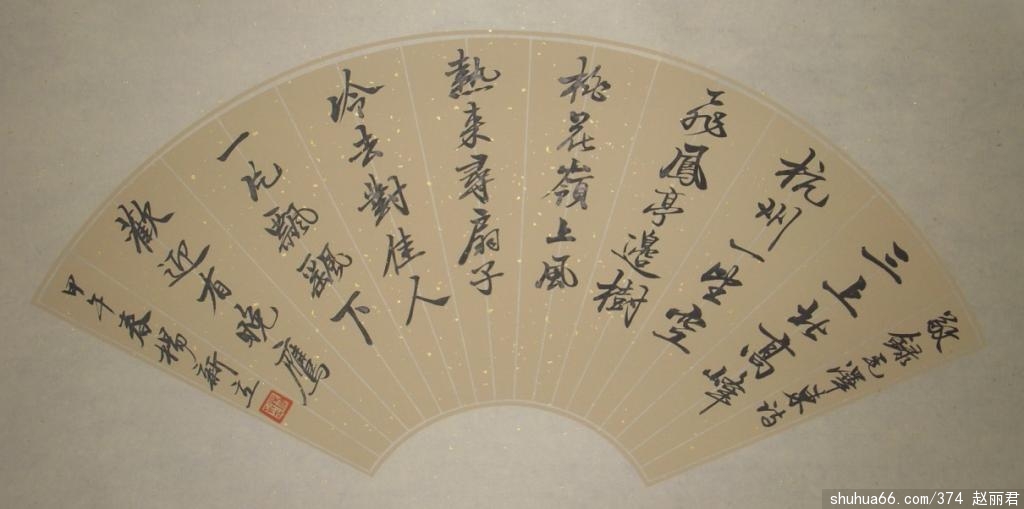 敬錄毛澤東詩
三上北高峰
杭州一望空
飛鳳亭邊樹
桃花嶺上風
熱来尋扇子
冷去對佳人
一片飄飄下
歡迎有晚鷹
甲午春楊立
shuhua66.com/374 赵丽君